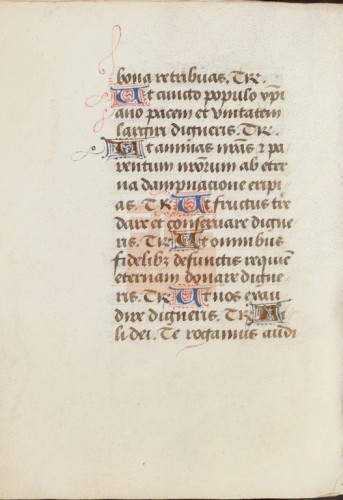 bona retribuas. Te R.
Ut cuncto populo xpi
ano pacem et unitatem
largiri digneris. Te R.
Ut animas nr̄as ⁊ pa
rentum nr̄orum ab eter
na dampnacione eripi
as. Te R. Ut fructus ter
dare et conseruare digne
ris. Te R. Ut omnibus
fidelibꝫ defunctis requiē
eternam donare digne
ris. Te R. Ut nos exau
dire digneris. Te R. Fi
li dei. Te rogamus audi